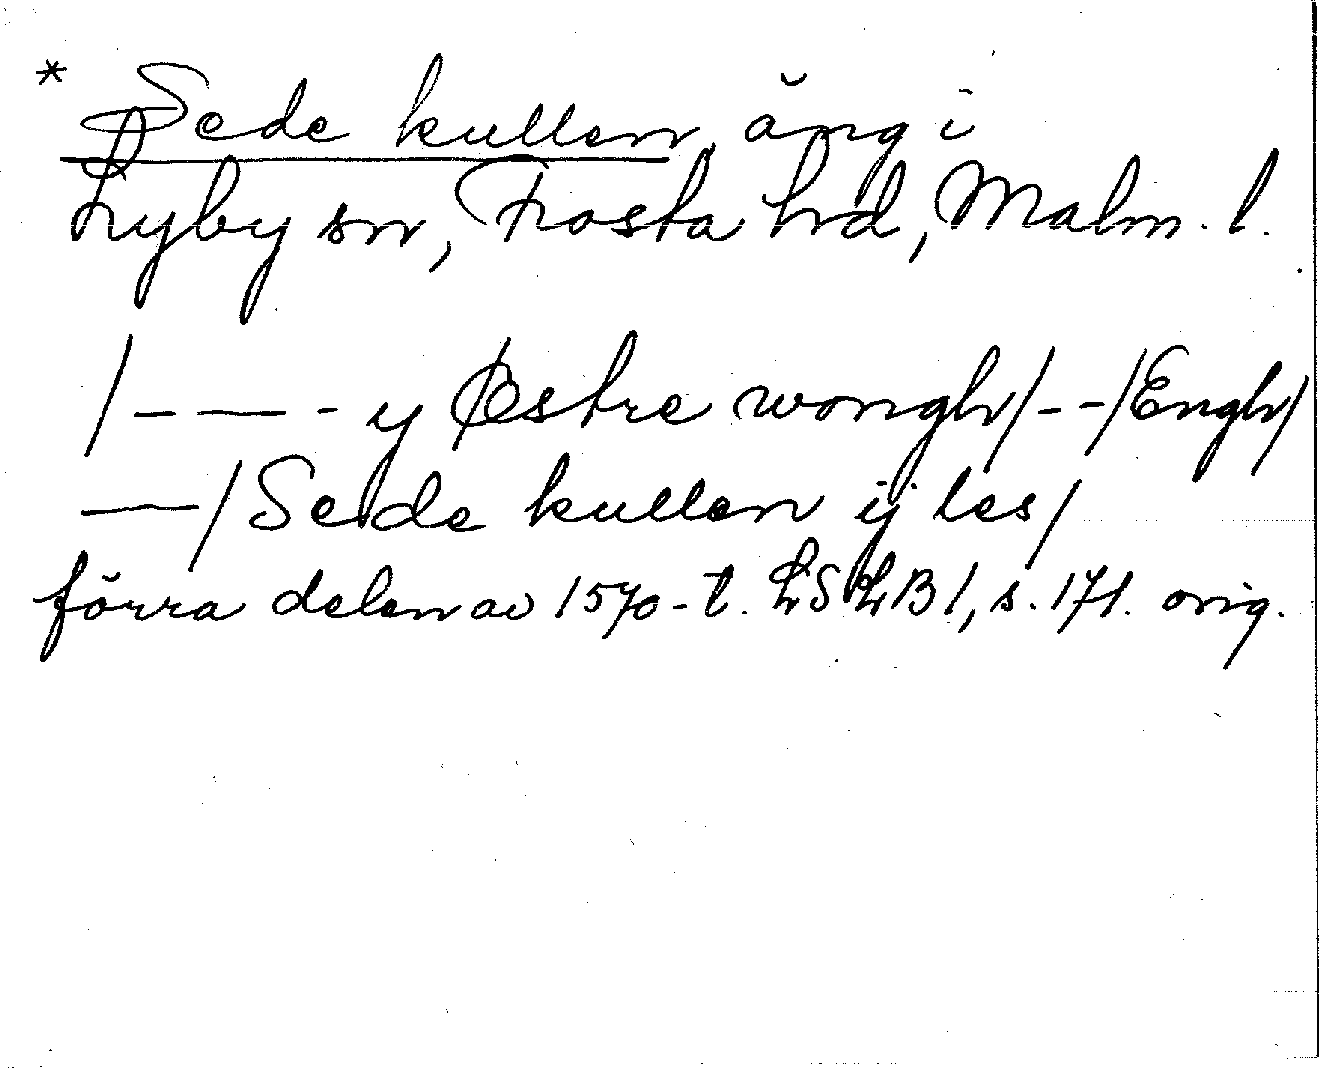 * Sede kullen, äng i
Lyby sn, Frosta hrd, Malm. l.
/— — - y Østre wongh/- -/Engh/
—/Sede kullen ij les/
förra delen av 1570-t. LSLB 1, s. 171. orig.